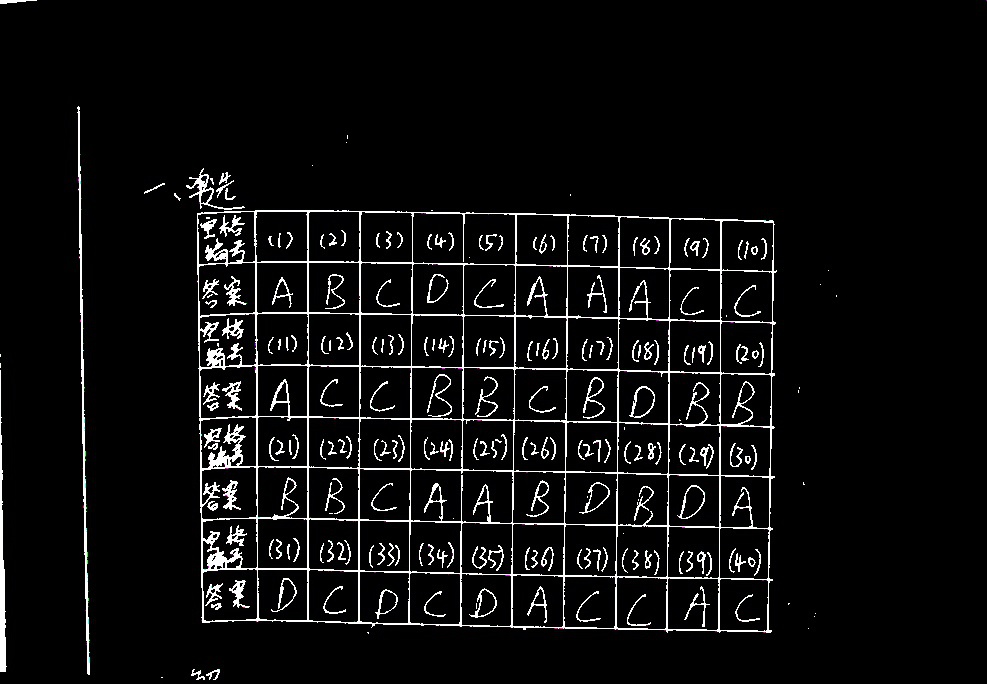 一、单选
空格编号 (1) (2) (3) (4) (5) (6) (7) (8) (9) (10)
答案 A B C D C A A A C C
空格编号 (11) (12) (13) (14) (15) (16) (17) (18) (19) (20)
答案 A C C B B C B D B B
空格编号 (21) (22) (23) (24) (25) (26) (27) (28) (29) (30)
答案 B B C A A B D B D A
空格编号 (31) (32) (33) (34) (35) (36) (37) (38) (39) (40)
答案 D C D C D A C C A C